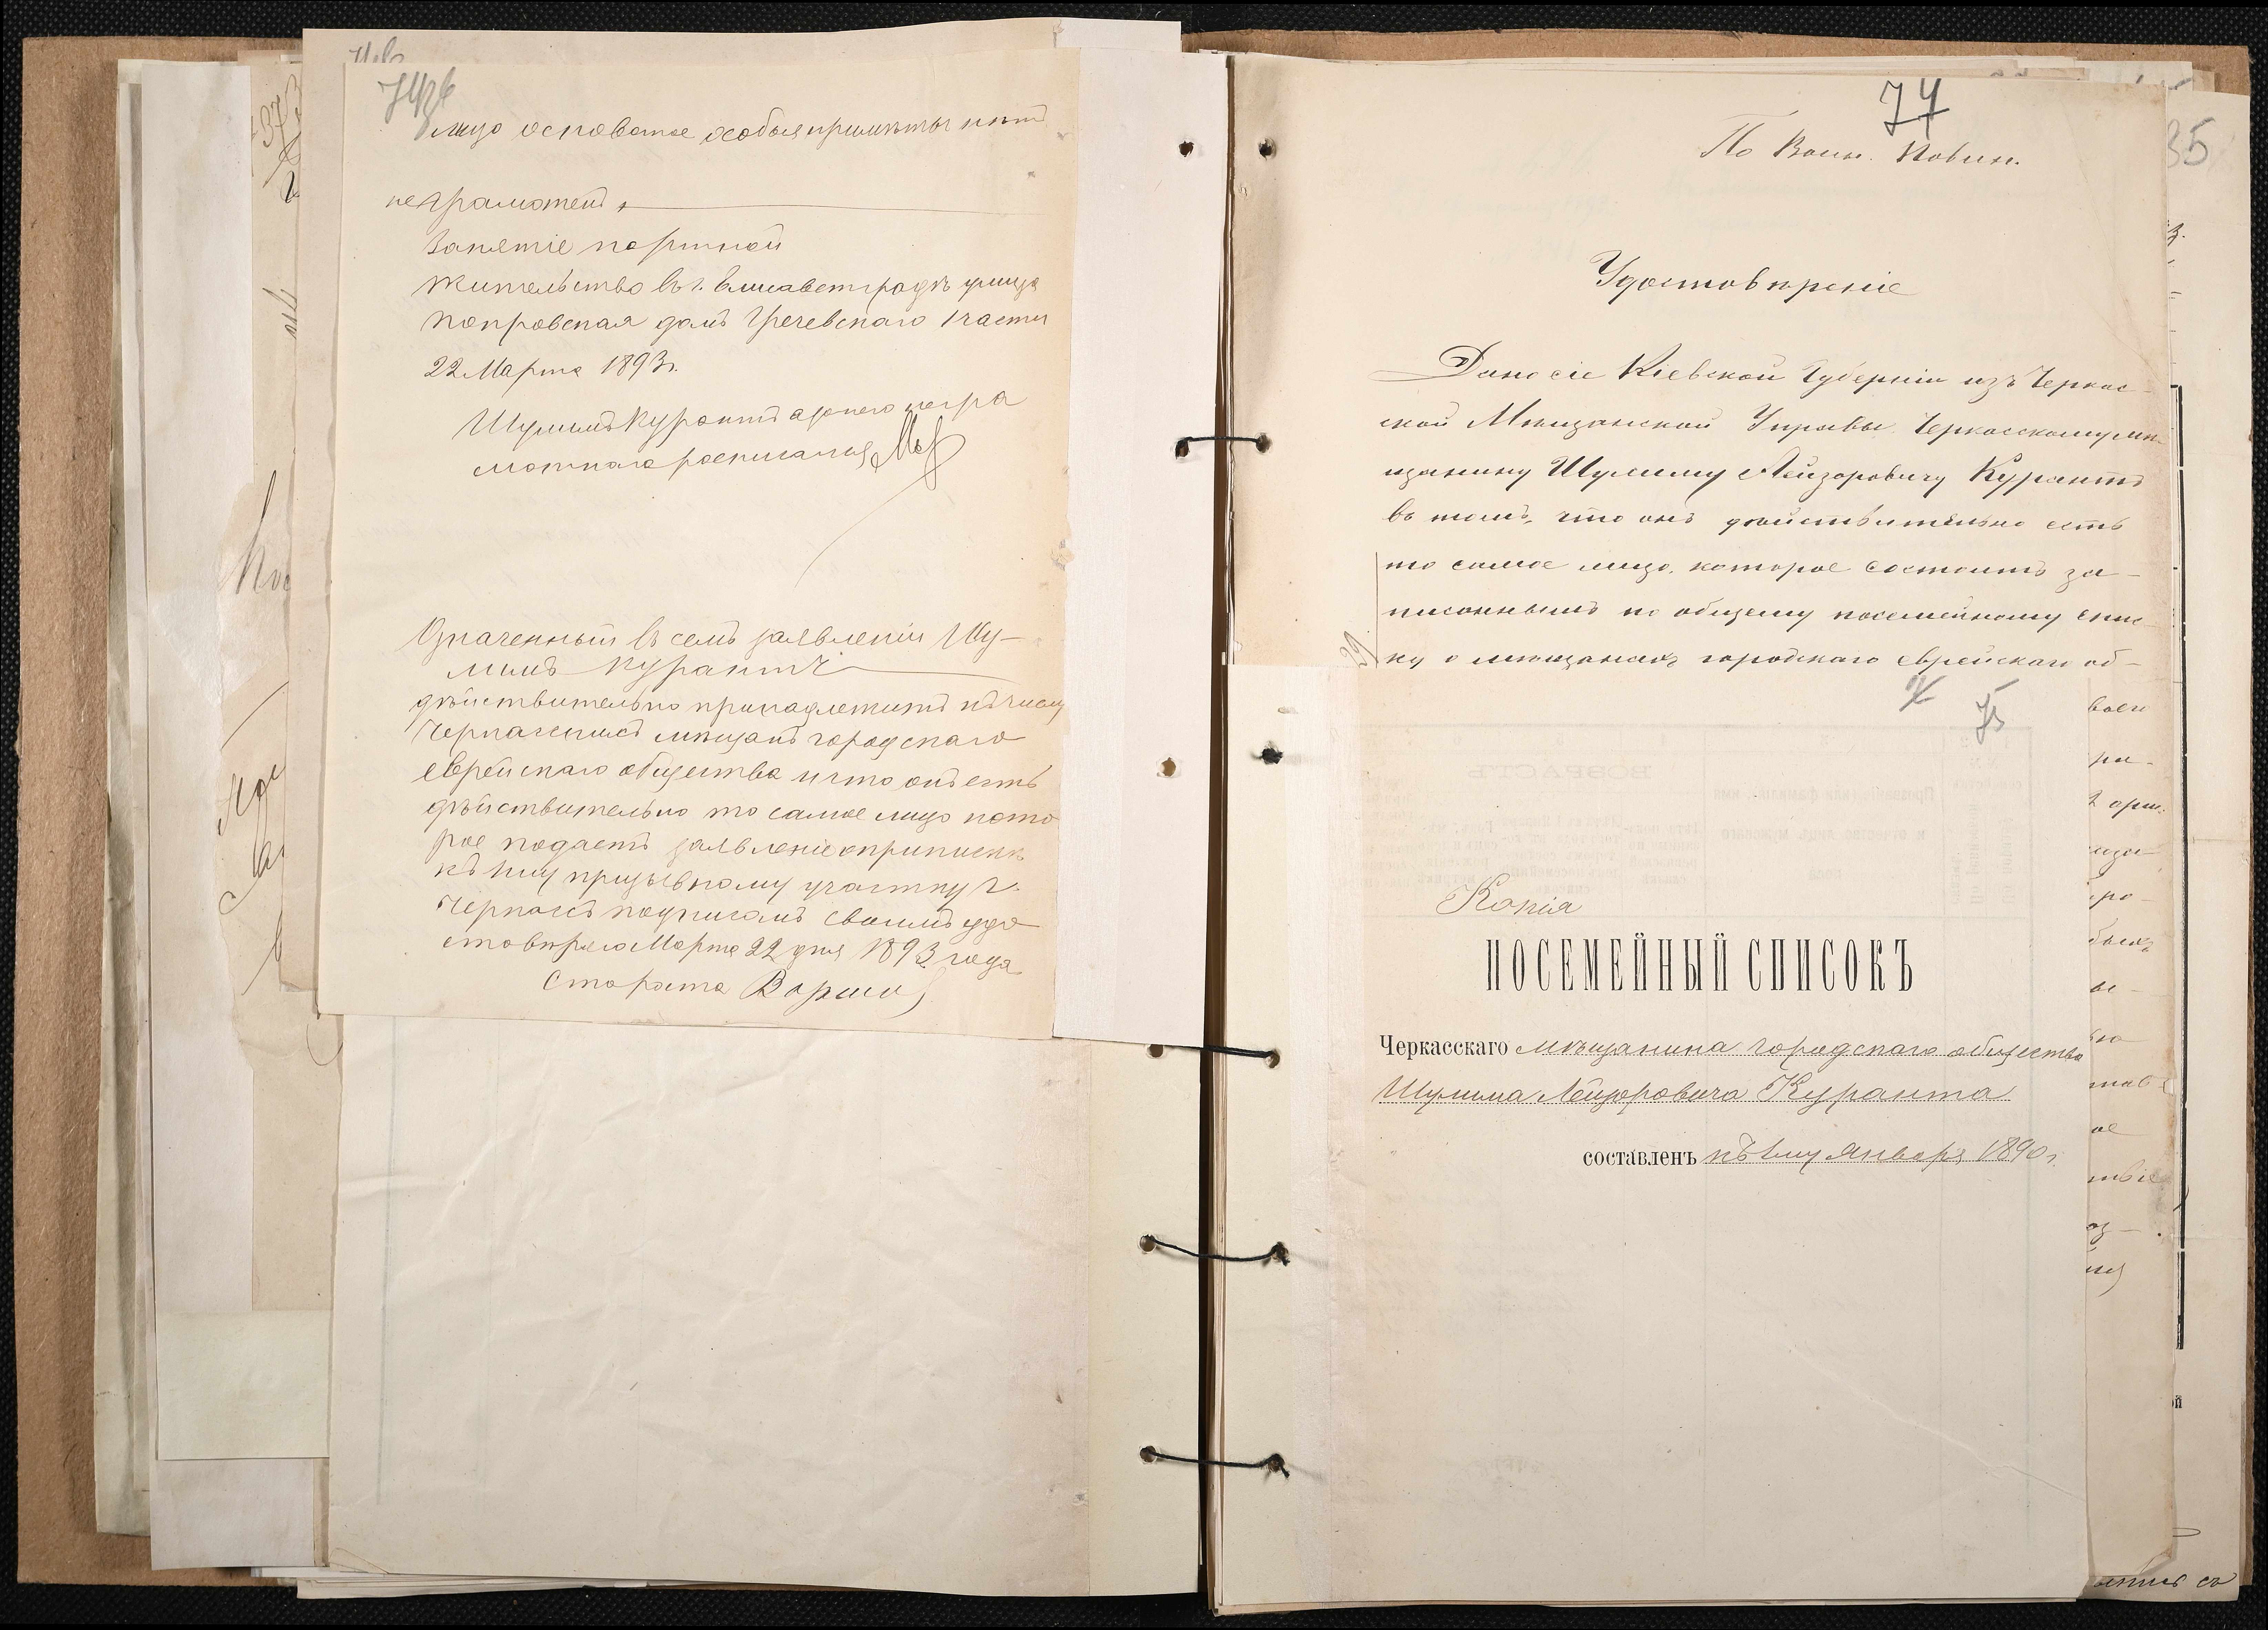 лицо осповатое особыя примѣты нѣтъ
неграмотенъ,
Занятіе портной
Жительство въ г. Елисаветградѣ улица
покровская домъ Гречевскаго 1 части
22 Марта 1893 г.
Шулимъ Курантъ а за него негра
мотнаго росписался
Означенный въ семъ заявленіи Шу-
лимъ Курантъ
дѣйствительно принадлежитъ къ числу
Черкасскихъ мѣщанъ городскаго
еврейскаго общества и что онъ есть
дѣйствительно то самое лицо кото
рое подаетъ заявленіе о припискѣ
къ 1му призывному участку г.
Черкасъ подписомъ своимъ удо
стовѣряю Марта 22 дня 1893 года
Староста
74
По Воин. Повин.
35
Удостовѣреніе
Дано сіе Кіевской Губерніи изъ Черкас-
ской Мѣщанской Управы Черкасскому мѣ-
щанину Шулиму Лейзоровичу Курантъ
въ томъ, что онъ дѣйствительно есть
то самое лицо, которое состоитъ за-
писаннымъ по общему посемейному спис-
ку о мѣщанахъ городскаго еврейскаго об-
29
75
Копія
ПОСЕМЕЙНЫЙ СПИСОКЪ
Черкасскаго мѣщанина городскаго общества
Шулима Лейзоровича Куранта
составленъ къ 1му Января 1890 г.